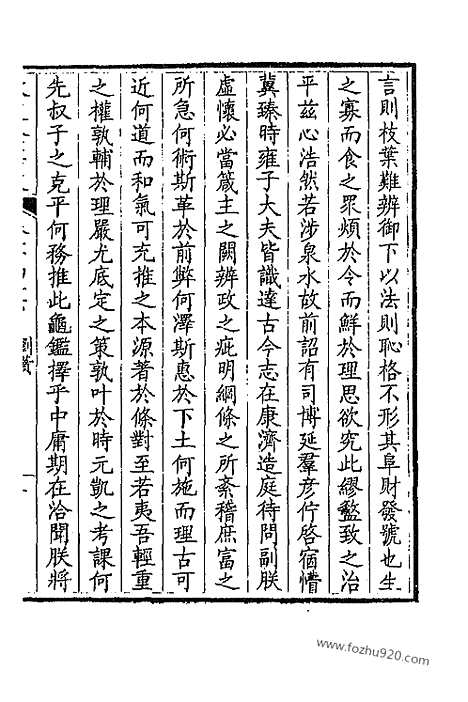 言則枝葉難辨御下以法則恥格不形其阜財發號也生
之寡而食之眾煩於令而鮮於理思欲究此繆盭致之治
平茲心浩然若涉泉水故前詔有司博延羣彥佇啓宿懵
冀臻時雍子大夫皆識達古今志在康濟造庭待問副朕
虛懷必當箴主之闕辨政之疵明綱條之所紊稽庶富之
所急何術斯革於前弊何澤斯惠於下土何施而理古可
近何道而和氣可充推之本源著於條對至若夷吾輕重
之權孰輔於理嚴尤底定之策孰叶於時元凱之考課何
先叔子之克平何務推此龜鑑擇乎中庸期在洽聞朕將
劉蕡
www.fozhu920.com